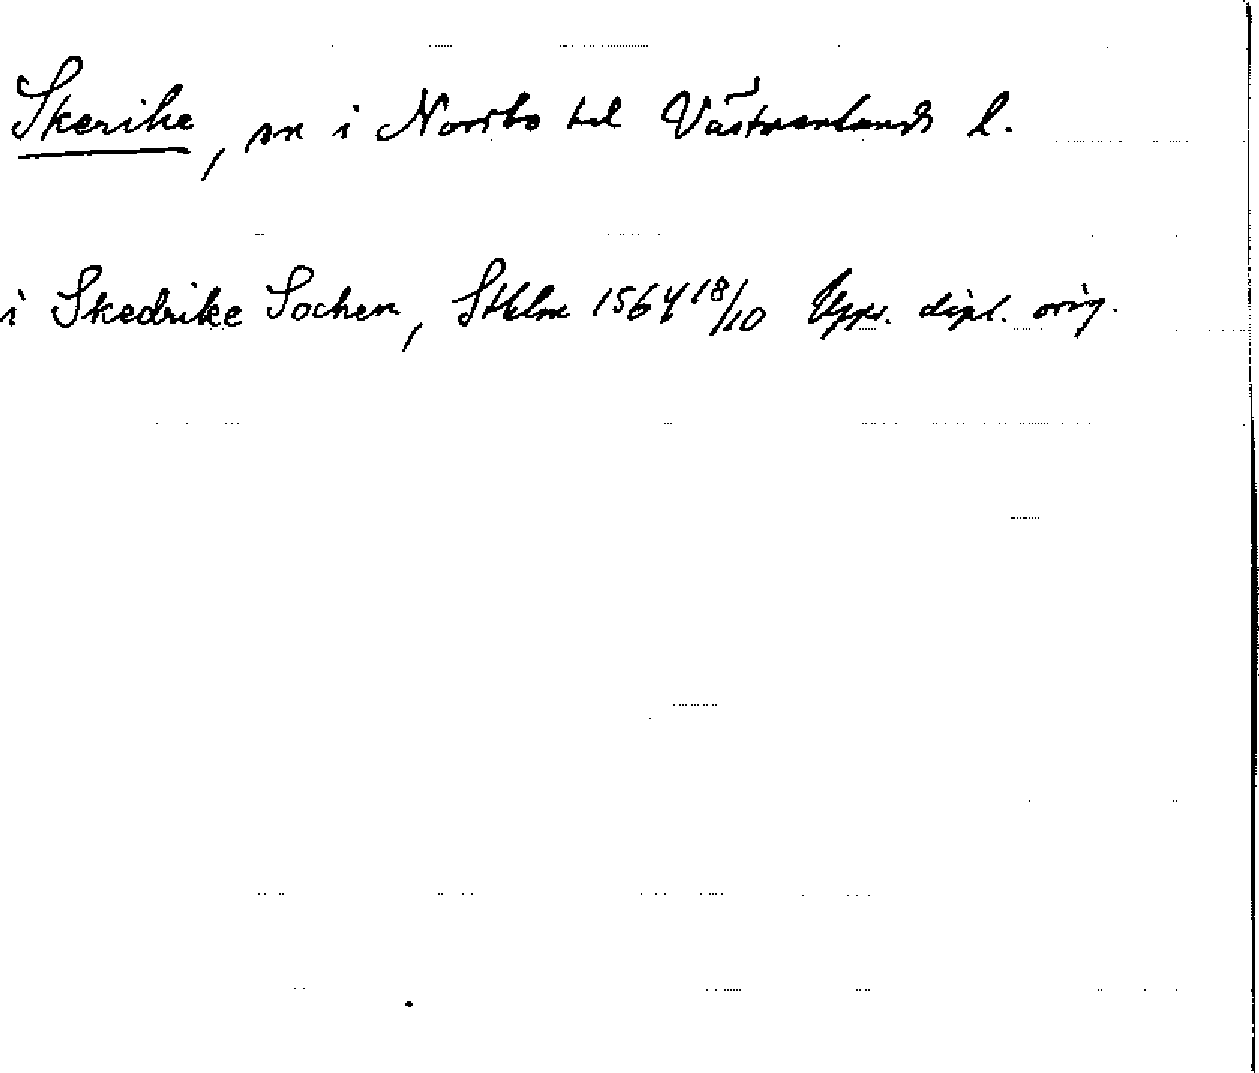 Skerike, sn i Norrbo hd Västmanlands l.
i Skedrike Sochen, Sthlm 1564 18/10 Upps. dipl. orig.